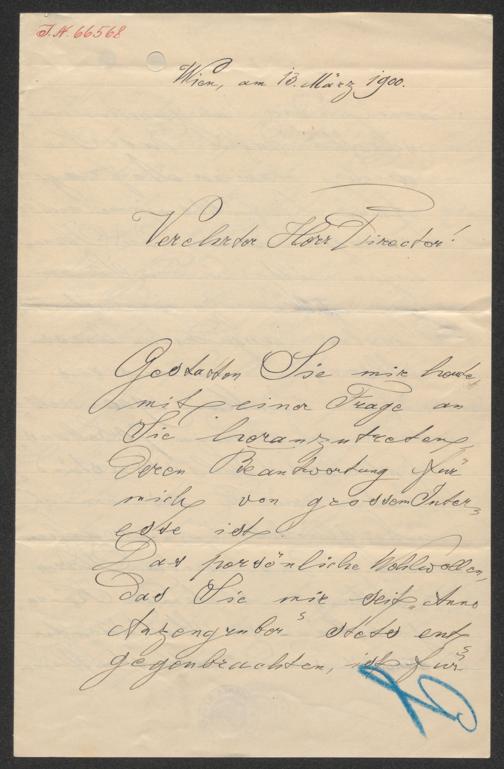 J.N. 66568
Wien, am 13. März 1900.
Verehrter Herr Director!
Gestatten Sie mir heute
mit einer Frage an
Sie heranzutreten,
deren Beantwortung für
mich von grossem Inter-
esse ist.
Das persönliche Wohlwollen,
das Sie mir seit "Anno
Anzengruber" stets ent-
gegenbrachten, ist für